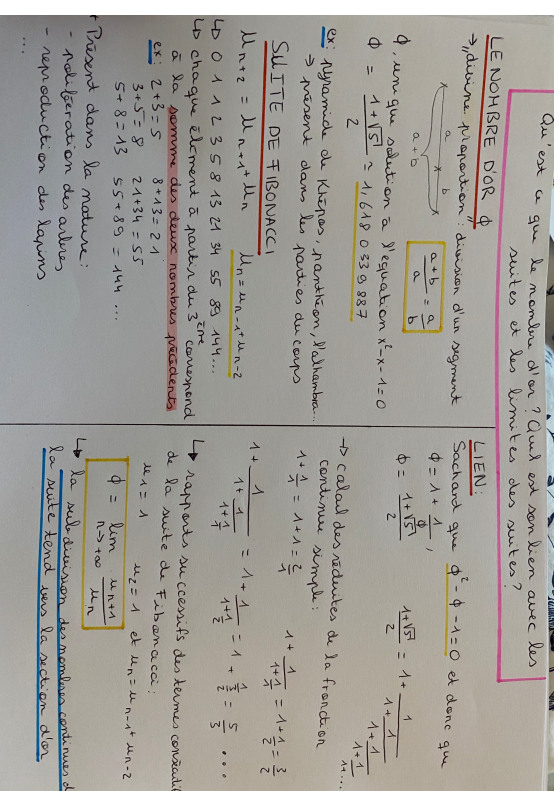 Qu'est ce que le nombre d'or ? Quel est son lien avec les
suites et les limites des suites ?
LE NOMBRE D'OR ϕ
→ "divine proportion : division d'un segment
a b
a+b
(a+b)/a = a/b
ϕ, unique solution à l'équation x²-x-1=0
ϕ = (1+√5)/2 = 1,618 0339887
ex: pyramide de Khéops, panthéon, l'alhambra...
→ présent dans les parties du corps
SUITE DE FIBONACCI
μn+2 = μn+1 + μn μn = μn-1 + μn-2
↳ 0 1 1 2 3 5 8 13 21 34 55 89 144...
↳ chaque élément à partir du 3ème correspond
à la somme des deux nombres précédents
ex: 2+3=5 8+13=21
3+5=8 21+34=55
5+8=13 55+89=144...
Présent dans la nature :
- prolifération des arbres
- reproduction des lapins
...
LIEN:
Sachant que ϕ²-ϕ-1=0 et donc que
ϕ = 1 + 1/ϕ ,
ϕ = (1+√5)/2 (1+√5)/2 = 1+1/(1+1/(1+1/(1+1/(1+...
→ calcul des réduites de la fraction
continue simple :
1+1/1 = 1+1 = 2/1 1+1/(1+1/1) = 1+1/2 = 3/2
1+1/(1+1/(1+1/1)) = 1+1/(1+1/2) = 1+1/(3/2) = 5/3 ...
↳ rapports successifs des termes consécutifs
de la suite de Fibonacci :
μ1 = 1 μ2 = 1 et μn = μn-1 + μn-2
ϕ = lim n→+∞ μn+1/μn
↳ la subdivision des nombres continues de
la suite tend vers la section d'or